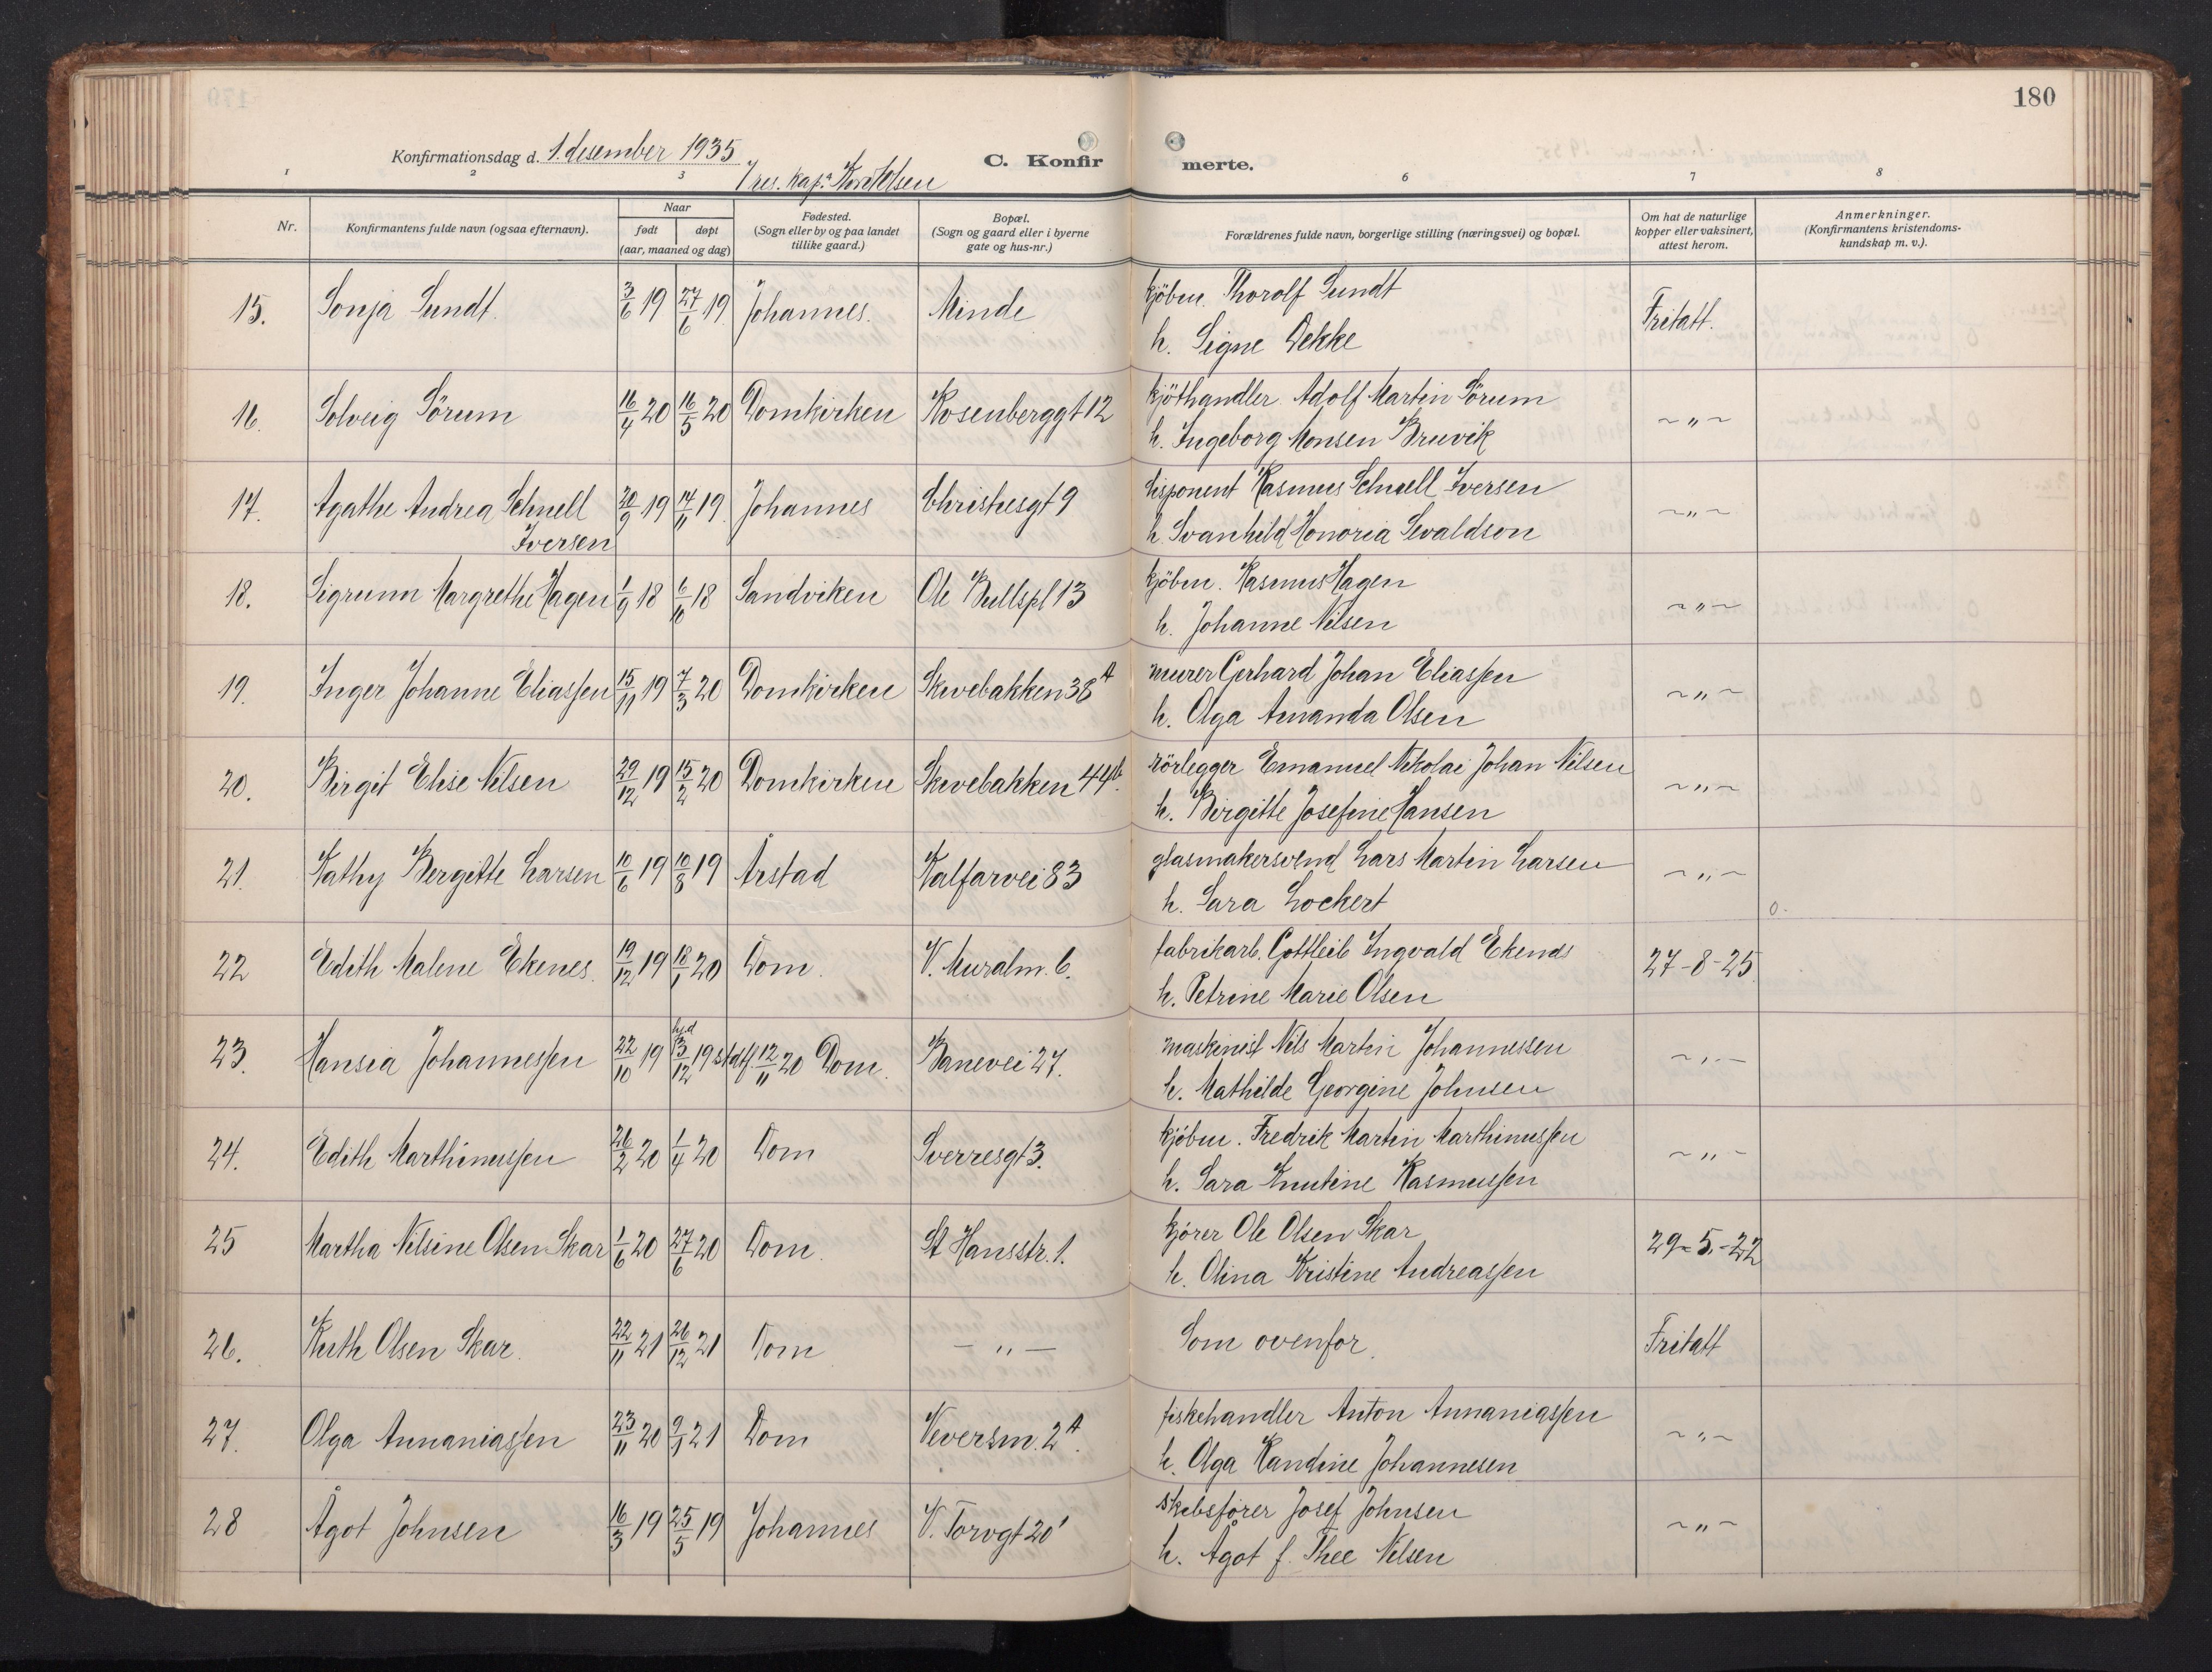 180
Konfirmationsdag d. 1. desember 1935
C. Konfirmerte.
1 2 3 6 7 8
res. kap.
Nr.
Konfirmantens fulde navn (ogsaa efternavn).
Naar
født døpt
(aar, maaned og dag)
Fødested.
(Sogn eller by og paa landet
tillike gaard.)
Bopæl.
(Sogn og gaard eller i byerne
gate og hus-nr.)
Forældrenes fulde navn, borgerlige stilling (næringsvei) og bopæl.
Om hat de naturlige
kopper eller vaksinert,
attest herom.
Anmerkninger.
(Konfirmantens kristendoms-
kundskap m. v.).
15. Sonja Sundt. 3/6 19 27/6 19 Johannes. Minde kjöbm. Thorolf Sundt
h. Signe Dekke Fritatt.
16. Solveig Sörum 16/4 20 16/5 20 Domkirken Rosenberggt 12 kjöthandler Adolf Martin Sörum
h. Ingeborg Monsen Bruvik ~"~
17. Agathe Andrea Schnell
Iversen 20/9 19 14/11 19. Johannes Christiesgt 9 disponent Rasmus Schnell Iversen
h. Svanhild Honoria Sevaldson ~"~
18. Sigrunn Margrethe Hagen 1/9 18 6/10 18 Sandviken Ole Bullspl 13 kjöbm. Rasmus Hagen
h. Johanne Nilsen ~"~
19. Inger Johanne Eliassen 15/11 19 7/3 20 Domkirken Skivebakken 38 A murer Gerhard Johan Eliassen
h. Olga Amanda Olsen ~"~
20. Birgit Elise Nilsen 29/12 19 15/2 20 Domkirken Skivebakken 44 b. rörlegger Emanuel Nikolai Johan Nilsen
h. Birgitte Josefine Hansen ~"~
21. Kathy Bergitte Larsen 10/6 19 10/8 19 Årstad Kalfarvei 83 glasmakersvend Lars Martin Larsen
h. Sara Lockert ~"~ 0.
22 Edith Malene Ekenes. 19/12 19 18/1 20 Dom. V. Muralm. 6. fabrikarb. Gottleib Ingvald Ekenes
h. Petrine Marie Olsen 27-8-25
23. Hansia Johannessen 22/10 19 hjd 13/12 19 stadf. 12/11 20 Dom. Banevei 27. maskinist Nils Martin Johannessen
h. Mathilde Georgine Johnsen ~"~
24. Edith Marthinussen 26/2 20 1/4 20 Dom Sverresgt 3. kjöbm. Fredrik Martin Marthinussen
h. Sara Knutine Rasmussen ~"~
25 Martha Nilsine Olsen Skar 1/6 20 27/6 20 Dom. St Hansstr. 1. kjører Ole Olsen Skar
h. Olina Kristine Andreassen 29-5-22
26. Ruth Olsen Skar. 22/11 21 26/12 21 Dom — " — Som ovenfor. Fritatt
27. Olga Annaniassen 23/11 20 9/1 21 Dom Veversm. 2 A. fiskehandler Anton Annaniassen
h. Olga Randine Johannesen ~"~
28 Ågot Johnsen 16/3 19 25/5 19 Johannes V. Torvgt 20' skibsfører Josef Johnsen
h. Ågot f. Thee Nilsen ~"~